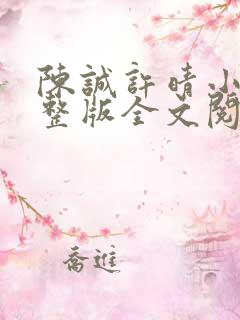 陳誠許晴小
整版全文閱
喬進